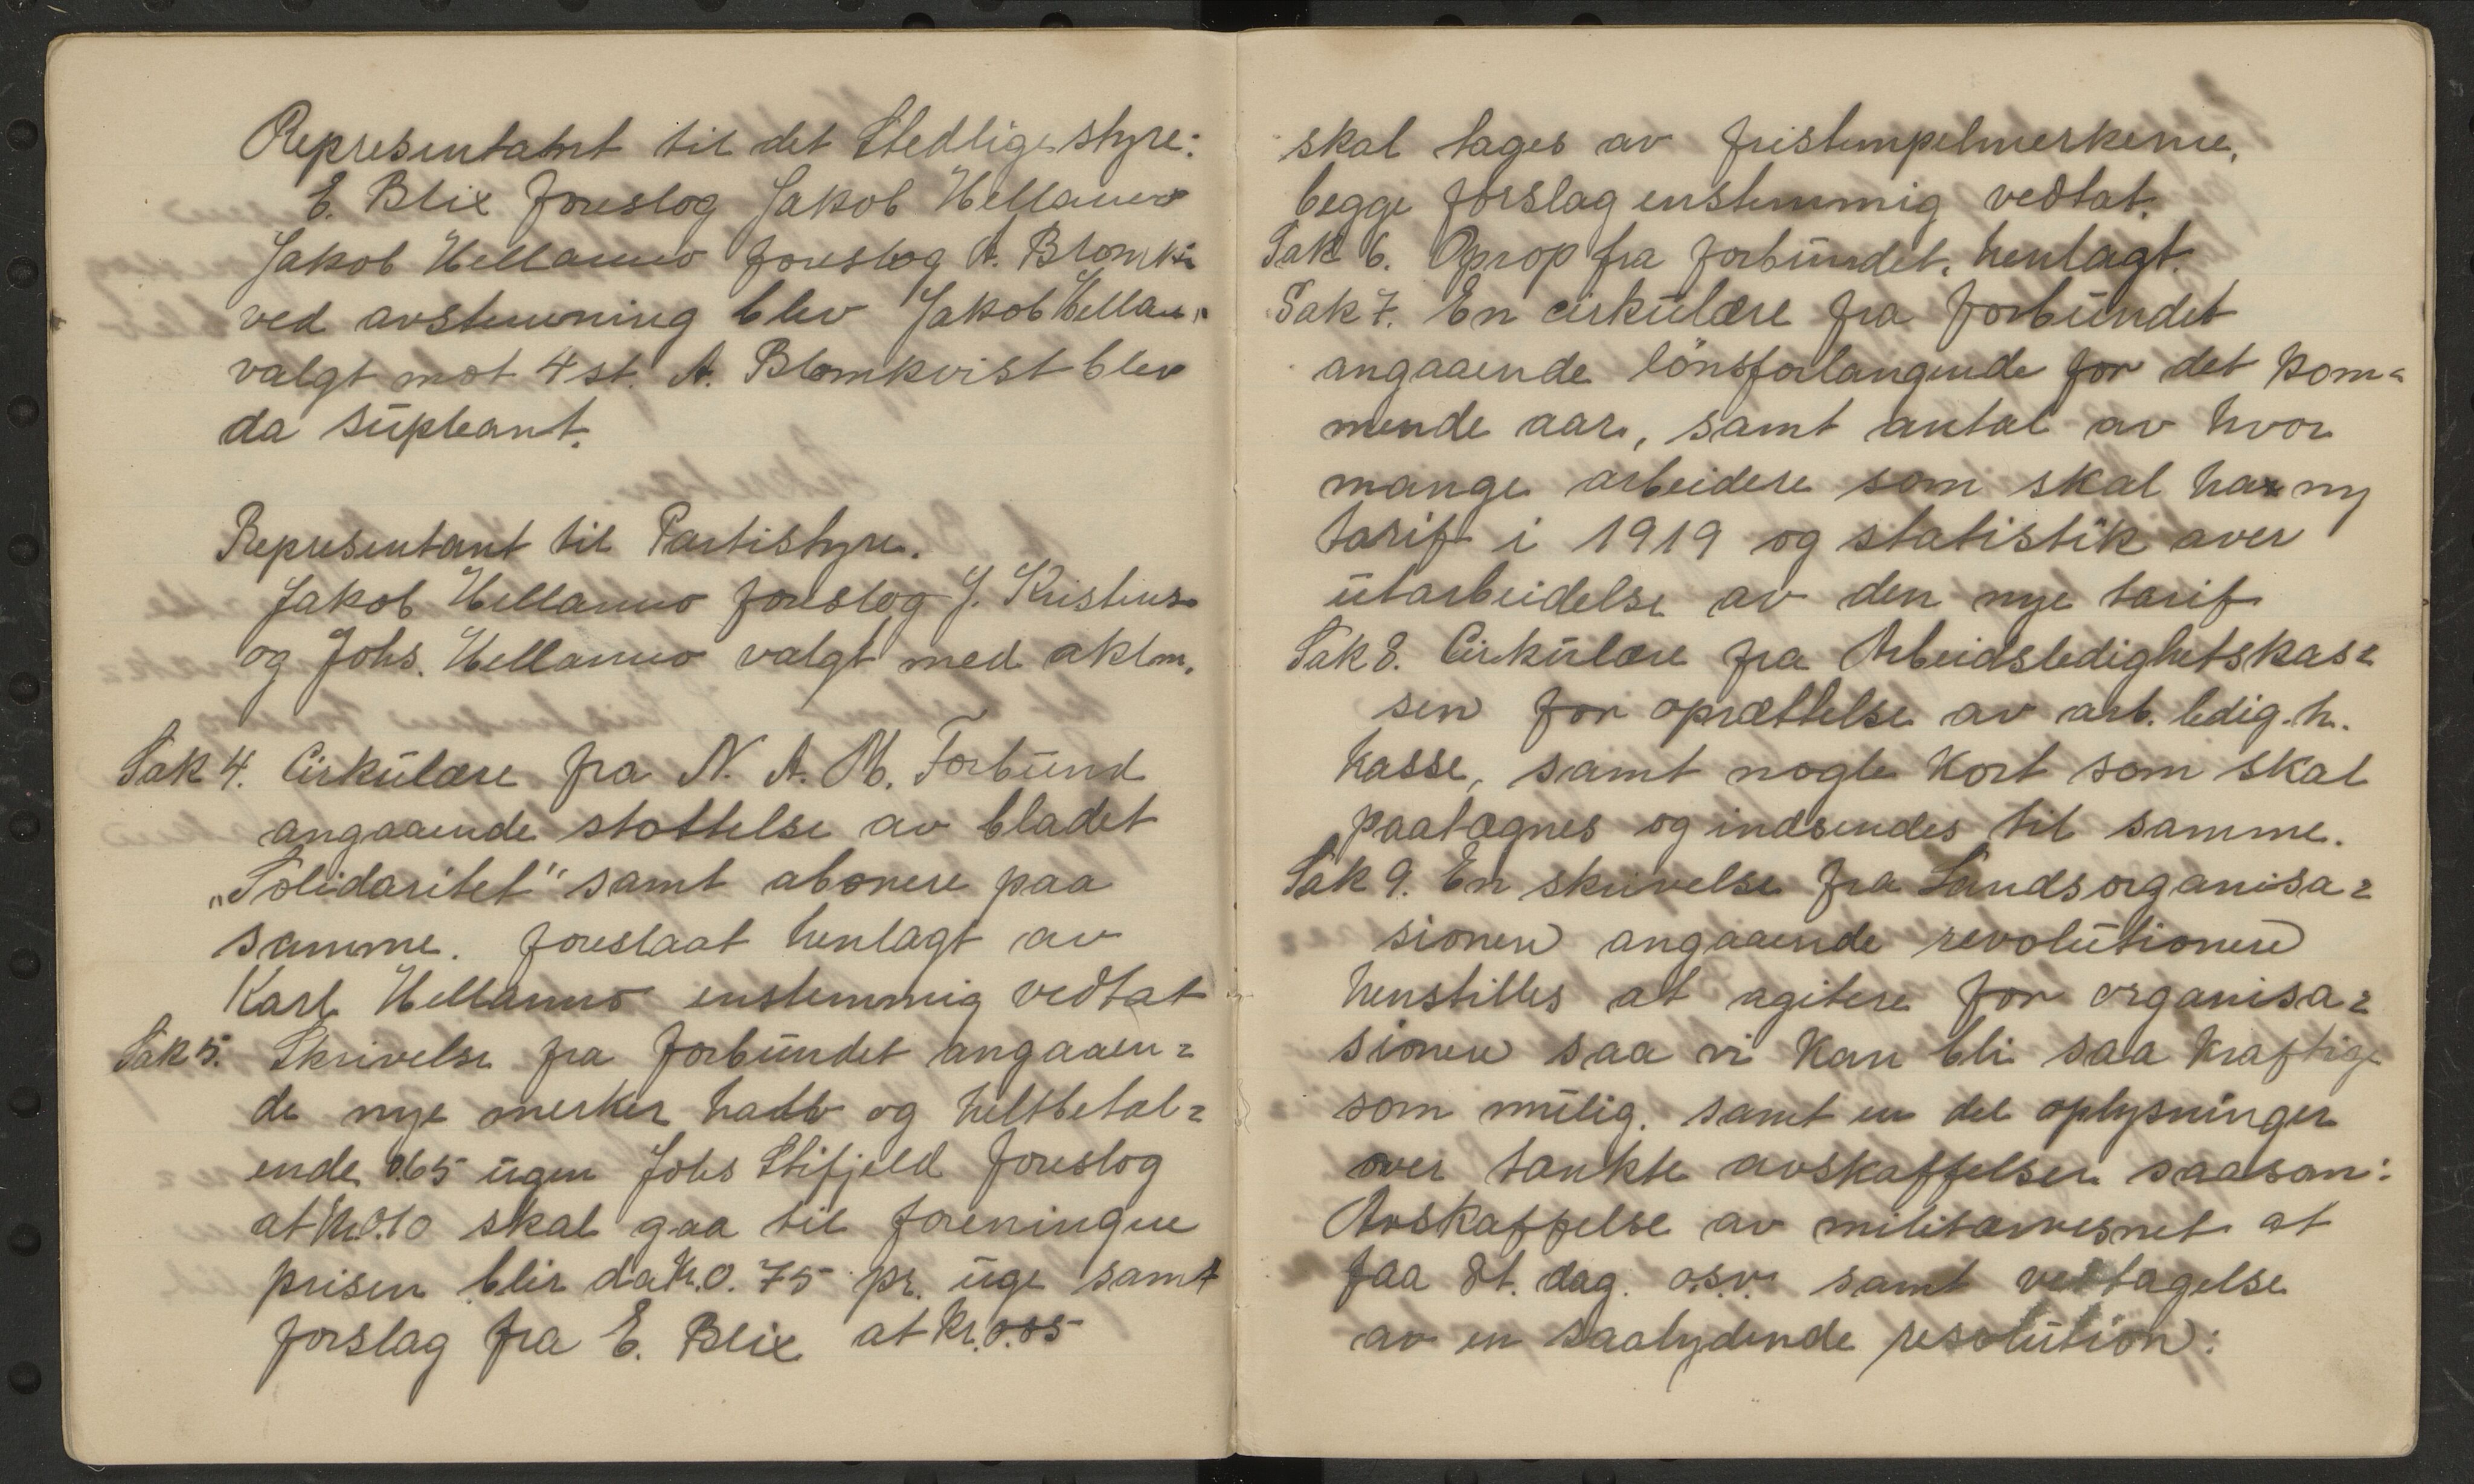 Representatnt til det Stedlige styre:
E. Blix foreslog Jakob Hellamo
Jakob Hellamo foreslog A. Blomkv
ved avstemning blev Jakob Hellam
valgt mot 4 st. A. Blomkvist blev
da supleant.
Representant til Partistyre.
Jakob Hellamo foreslog J. Kristens
og Johs. Hellamo valgt med aklm.
Sak 4. Cirkulære fra N. A. M. Forbund
angaaende støttelse av bladet
„Solidaritet" samt abonere paa
samme. foreslaat henlagt av
Karl Hellamo enstemmig vedtat
Sak 5. Skrivelse fra forbundet angaaen=
de nye merker halv og heltbetal=
ende 0.65 ugen Johs Stifjeld foreslog
at Kr. 0.10 skal gaa til foreningen
prisen blir da Kr. 0.75 pr. uge samt
forslag fra E. Blix at Kr. 0.05
skal tages av fristempelmerkerne,
begge forslag enstemmig vedtat.
Sak 6. Oprop fra forbundet, henlagt.
Sak 7. En cirkulære fra forbundet
angaaende lønsforlangende for det kom=
mende aar, samt antal av hvor
mange arbeidere som skal ha ny
tarif i 1919 og statistik over
utarbeidelse av den nye tarif
Sak 8. Cirkulære fra Arbeidsledighetskas=
sen for oprættelse av arb. ledig. h.
kasse, samt nogle kort som skal
paategnes og indsendes til samme.
Sak 9. En skrivelse fra Landsorganisa=
sionen angaaende revolutionen
henstilles at agitere for organisa=
sionen saa vi kan bli saa kraftige
som mulig. samt en del oplysninger
over tænkte avskaffelser saasom:
Avskaffelse av militærvesnet at
faa 8 t. dag. o.s.v. samt vedtagelse
av en saalydende resolution: